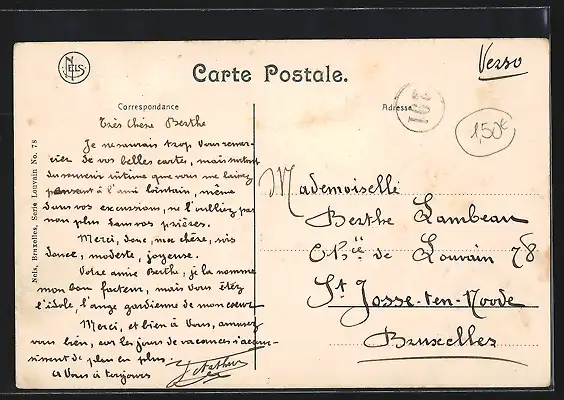 NELS
Carte Postale.
Verso
Correspondance
Adresse
391
1,50€
Nels, Bruxelles, Serie Louvain No. 78
Très chère Berthe
Je ne saurais trop vous remer-
cier de vos belles cartes, mais surtout
du souvenir intime que vous me laissez
pensant à l'ami lointain, même
dans vos excursions, ne l'oubliez pas
non plus dans vos prières.
Merci, donc, ma chère, sois
douce, modeste, joyeuse.
Votre amie Berthe, je la nomme
mon bon facteur, mais vous êtes
l'idole, l'ange gardienne de mon coeur
Merci, et bien à Vous, amusez
vous bien, car les jours de vacances s'accu-
de plus en plus.
à Vous à toujours
Mademoiselle
Berthe Lambeau
Chée de Louvain 78
St Josse-ten-Noode
Bruxelles